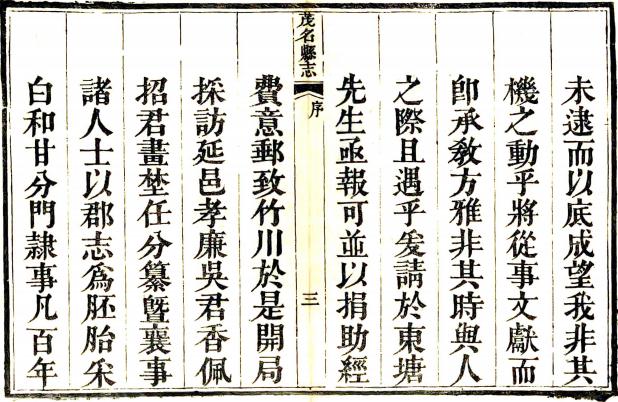 未逮而以底成望我非其
機之動乎將從事文獻而
卽承敎方雅非其時與人
之際且遇乎爰請於東塘
先生亟報可並以捐助經
茂名縣志
序
三
費意郵致竹川於是開局
採訪延邑孝廉吳君香佩
招君畫埜任分纂曁襄事
諸人士以郡志爲胚胎采
白和甘分門隸事凡百年